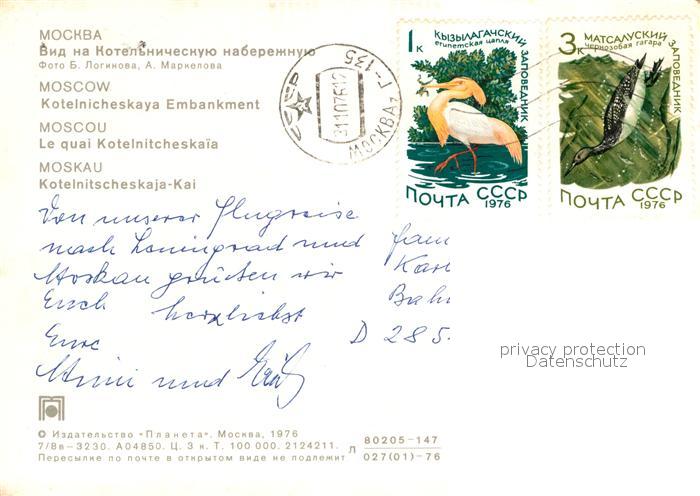 МОСКВА
Вид на Котельническую набережную
Фото Б. Логинова, А. Маркелова
MOSCOW
Kotelnicheskaya Embankment
MOSCOU
Le quai Kotelnitcheskaïa
MOSKAU
Kotelnitscheskaja-Kai
СССР
МОСКВА, Г-135
311076
1к
КЫЗЫЛАГАЧСКИЙ ЗАПОВЕДНИК
египетская цапля
ПОЧТА СССР
1976
3к
МАТСАЛУСКИЙ ЗАПОВЕДНИК
чернозобая гагара
ПОЧТА СССР
1976
Von unserer Flugreise
nach Leningrad und
Moskau grüßen wir
Euch herzlichst
Eure
und
Fam
Karl
Bahn
D 285
privacy protection
Datenschutz
© Издательство «Планета». Москва, 1976
7/8в-3230. А04850. Ц. 3 к. Т. 100 000. 2124211.
Пересылке по почте в открытом виде не подлежит
Л 80205-147
027(01)-76